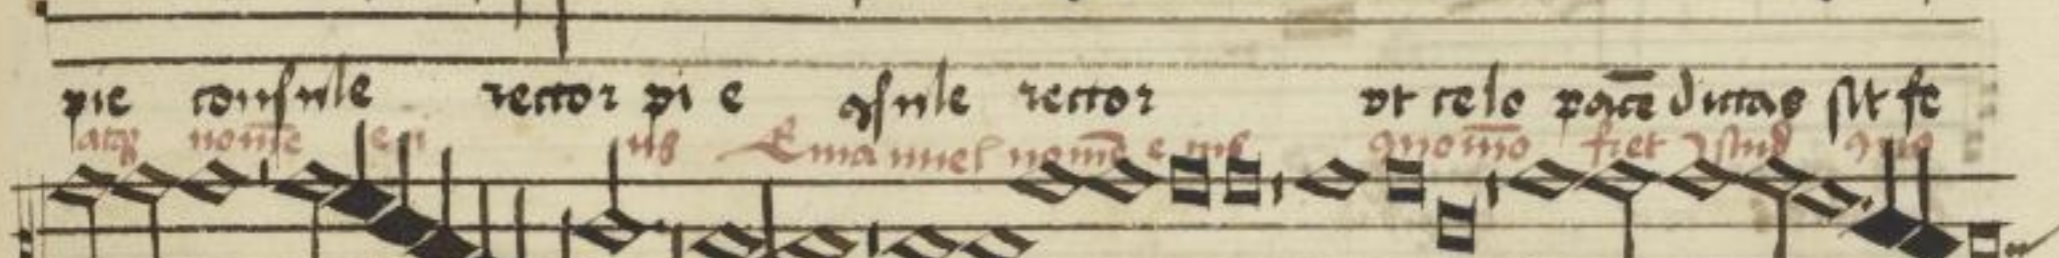 pie consule rector pi e ꝯsule rector vt celo pacē dictas sit fe
atqꝫ nomē e ius Emanuel nomē e ius quomō fiet istud